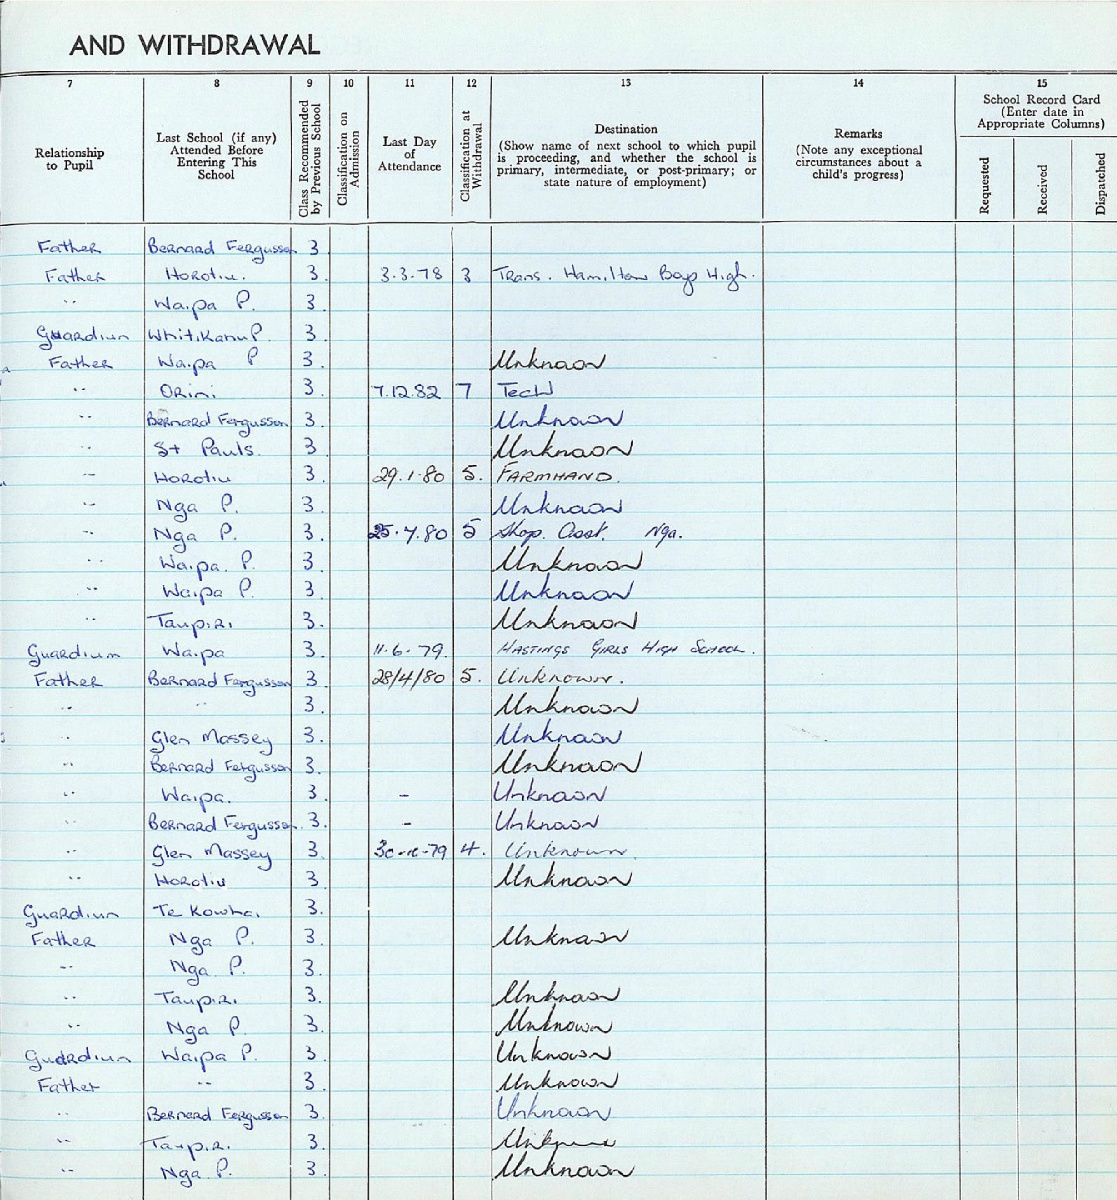 AND WITHDRAWAL
7 8 9 10 11 12 13 14 15
Relationship to Pupil
Last School (if any) Attended Before Entering This School
Class Recommended by Previous School
Classification on Admission
Last Day of Attendance
Classification at Withdrawal
Destination (Show name of next school to which pupil is proceeding, and whether the school is primary, intermediate, or post-primary; or state nature of employment)
Remarks (Note any exceptional circumstances about a child's progress)
School Record Card (Enter date in Appropriate Columns)
Requested Received Dispatched
Father Bernard Fergusson 3.
Father Horotiu. 3. 3.3.78 3 Trans. Hamilton Boys High.
" Waipa P. 3.
Guardian Whitikahu P. 3.
Father Waipa P 3. Unknown
" Orini 3. 7.12.82 7 Tech
" Bernard Fergusson 3. Unknown
" St Pauls. 3. Unknown
" Horotiu 3. 29.1.80 5. FARMHAND.
" Nga P. 3. Unknown
" Nga P. 3. 25.7.80 5 Shop. Asst. Nga.
" Waipa. P. 3. Unknown
" Waipa P. 3. Unknown
" Taupiri 3. Unknown
Guardian Waipa 3. 11.6.79. HASTINGS GIRLS HIGH SCHOOL.
Father Bernard Fergusson 3. 28/4/80 5. Unknown.
" " 3. Unknown
" Glen Massey 3. Unknown
" Bernard Fergusson 3. Unknown
" Waipa. 3. - Unknown
" Bernard Fergusson. 3. - Unknown
" Glen Massey 3. 79 4. Unknown.
" Horotiu 3. Unknown
Guardian Te Kowhai 3.
Father Nga P. 3. Unknown
" Nga P. 3.
" Taupiri 3. Unknown
" Nga P. 3. Unknown
Guardian Waipa P. 3. Unknown
Father " 3. Unknown
" Bernard Fergusson 3. Unknown
" Taupiri. 3. Unknown
" Nga P. 3. Unknown